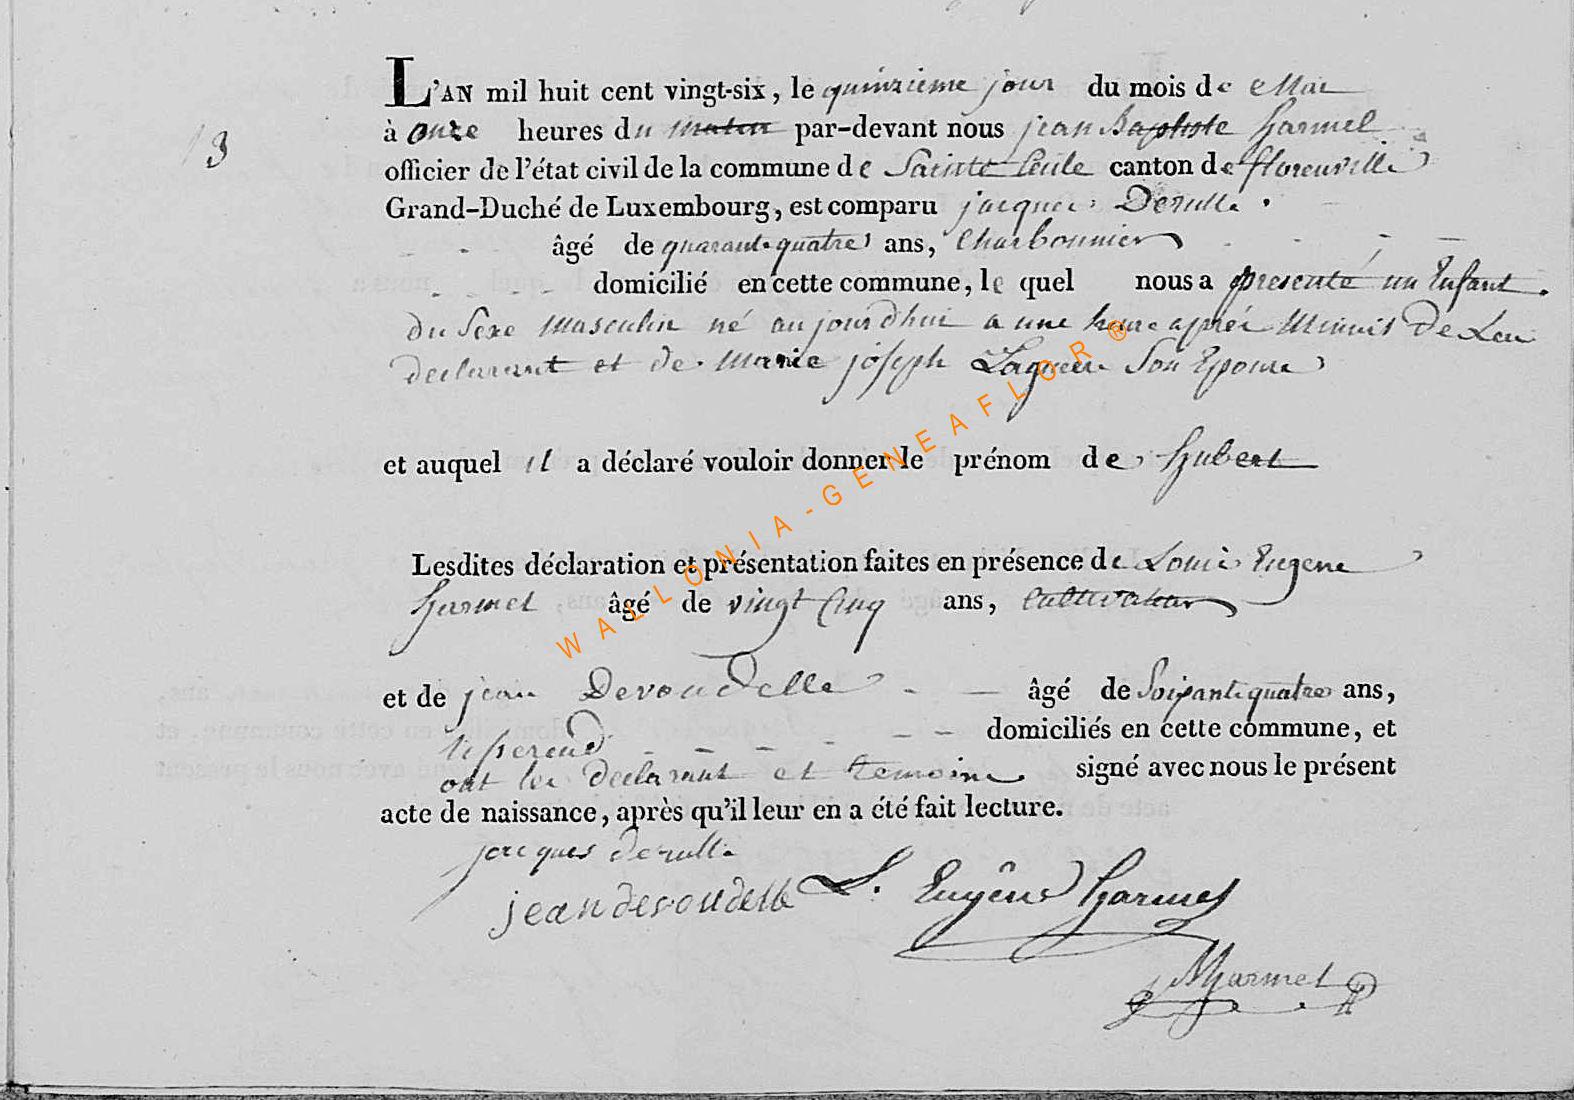 L'AN mil huit cent vingt-six, le quinzieme jour du mois de Mai
à onze heures du matin par-devant nous jean Baptiste Harmel
13
officier de l'état civil de la commune de Sainte Cecile canton de florenville
Grand-Duché de Luxembourg, est comparu jacques Derulle.
âgé de quarante quatre ans, Charbonnier
domicilié en cette commune, le quel nous a presenté un Enfant
du Sexe Masculin né aujourdhui a une heure après Minuit De Lui
declarant et de Marie joseph Son Epouse
et auquel il a déclaré vouloir donner le prénom de Hubert
Lesdites déclaration et présentation faites en présence de Louis Eugene
Harmel âgé de vingt Cinq ans, Cultivateur
et de jean Devoudelle âgé de Soixante quatre ans,
domiciliés en cette commune, et
ont les declarant et temoins signé avec nous le présent
acte de naissance, après qu'il leur en a été fait lecture.
jacques derulle
jean devoudelle L. Eugêne Harmel
Harmel
WALLONIA-GENEAFLOR®